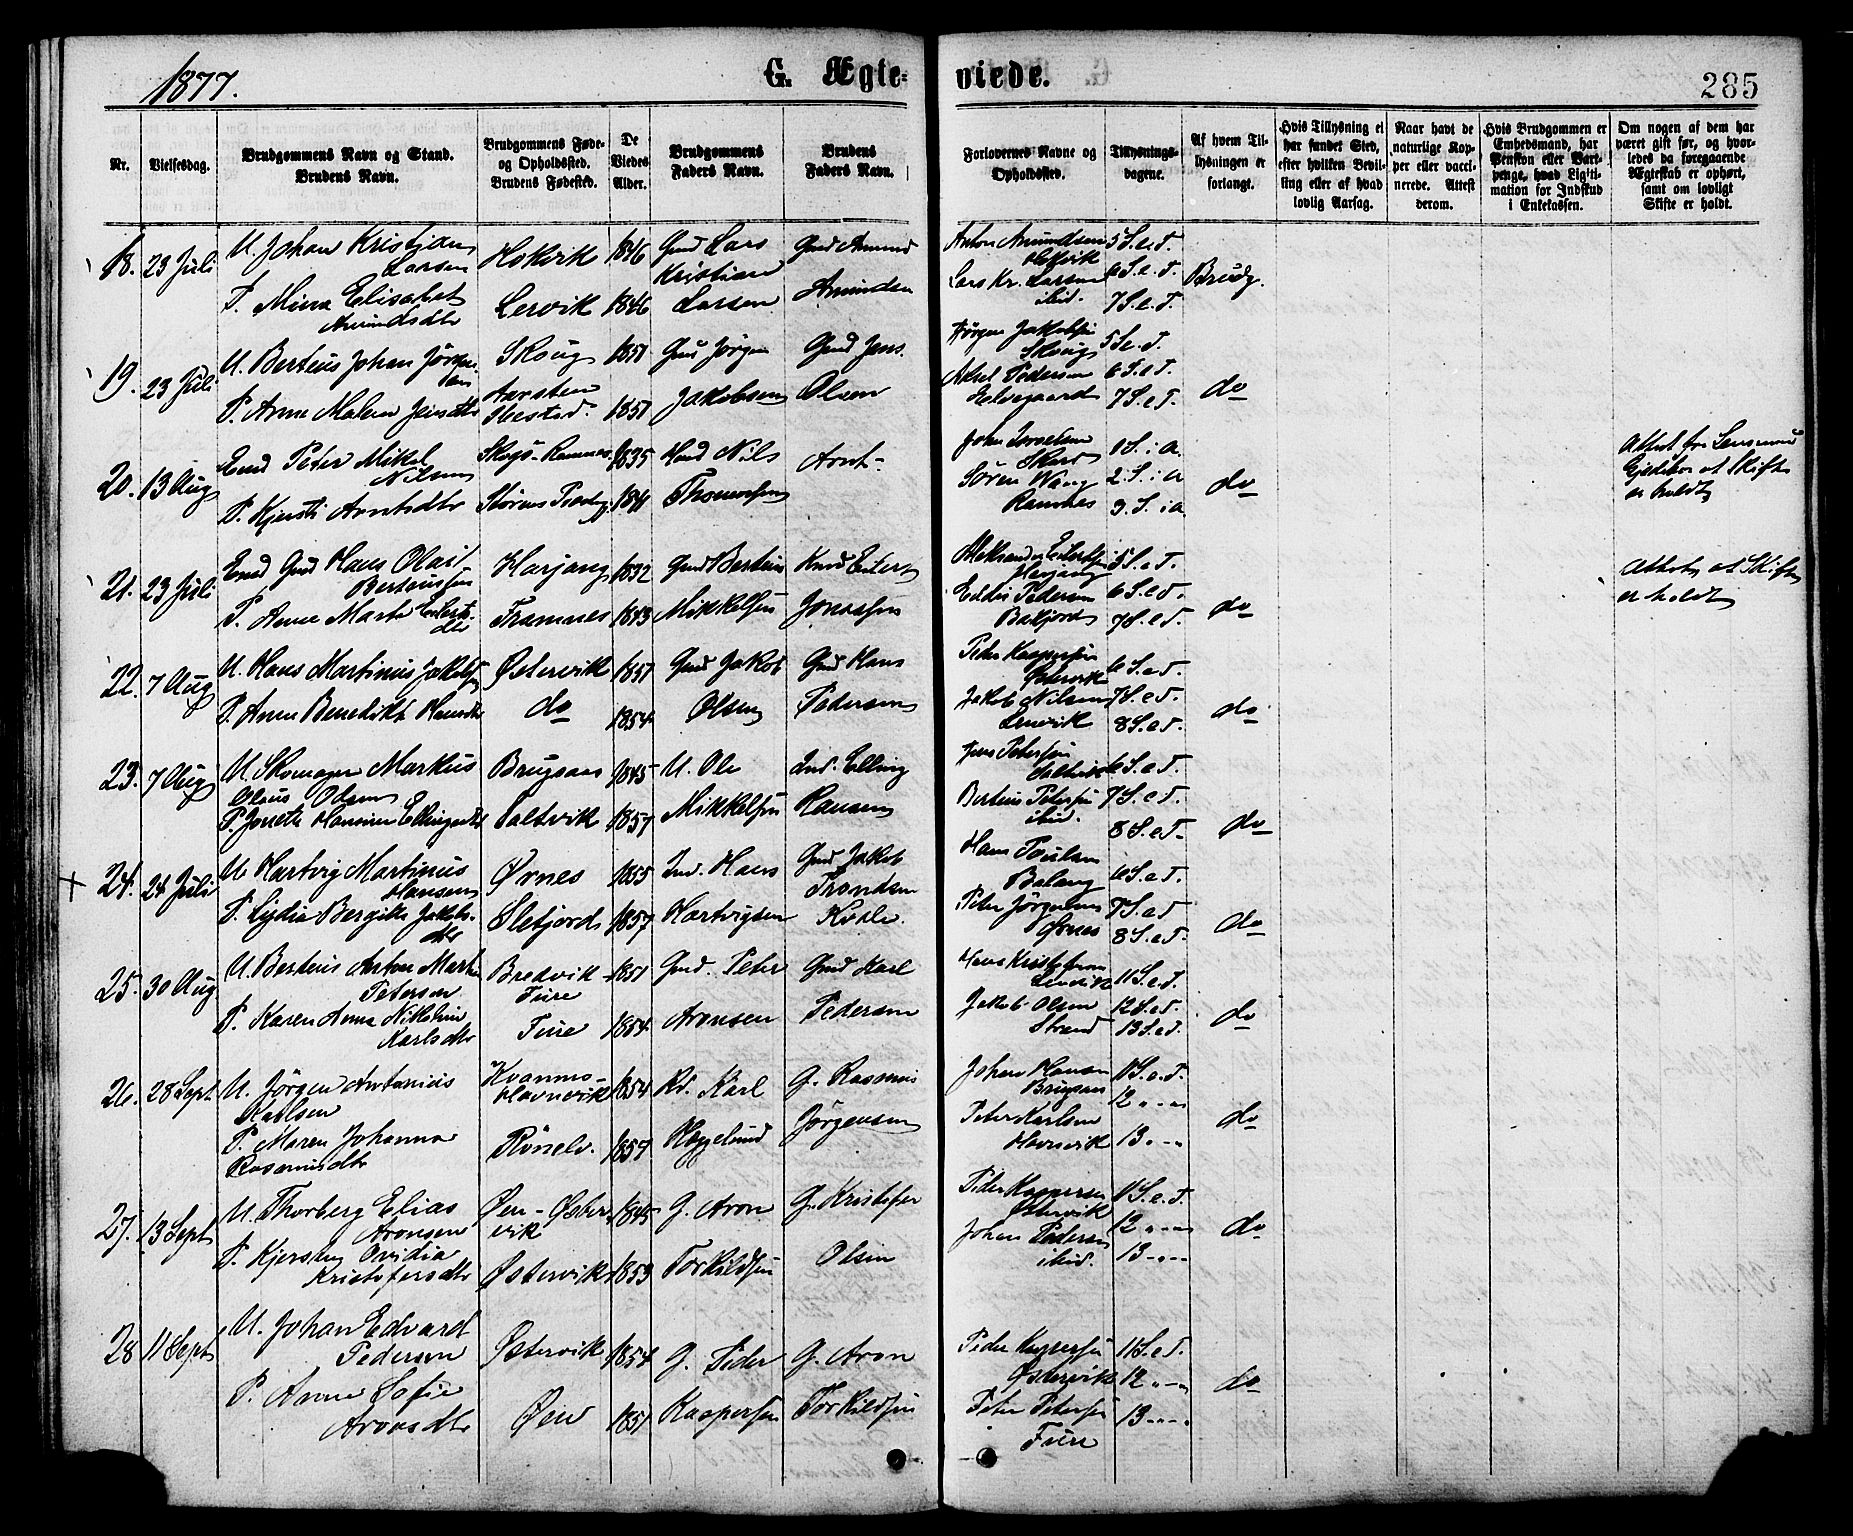 1877.
G. Ægte-
viede.
285
Nr.
Vielsesdag.
Brudgommens Navn og Stand.
Brudens Navn.
Brudgommens Føde-
og Opholdssted.
Brudens Fødested.
De
Viedes
Alder.
Brudgommens
Faders Navn.
Brudens
Faders Navn.
Forlovernes Navne og
Opholdssted.
Tillysnings-
dagene.
Af hvem Til-
lysningen er
forlangt.
Hvis Tillysning ei
har fundet Sted,
efter hvilken Bevil-
ling eller af hvad
lovlig Aarsag.
Naar havt de
naturlige Kop-
per eller vacci-
nerede. Attest
derom.
Hvis Brudgommen er
Embedsmand, har
Pension eller Vart-
penge, hvad Ligiti-
mation for Indskud
i Enkekassen.
Om nogen af dem har
været gift før, og hvor-
ledes da foregaaende
Ægteskab er ophørt,
samt om lovligt
Skifte er holdt.
18. 23 Juli
U. Johan Kristian
Larsen
P. Mina Elisabet
Amundsdtr
Hokvik
Lervik
1846
1846
Gmd Lars
Kristian
Larsen
Gmd Amund
Amundsen
Anton Amundsen
Lars Kr. Larsen
ibid.
5 S. e. T.
6 S. e. T.
7 S. e. T.
Brudg.
19. 23 Juli
U. Berteus Johan Jörgen-
sen
P. Anne Malene Jensdtr
Skoug
Aarsten
Ibestad.
1851
1851
Gmd Jörgen
Jakobsen
Gmd Jens
Olsen
Jörgen Jakobsen
Skoug
Aksel Pedersen
5 S. e. T.
6 S. e. T.
7 S. e. T.
do
20. 13 Aug
Enkd Peter Mikal
Nilsen
P. Kjersti Arntsdtr
1835
1841
Nils
Thomassen
Arnt-
Sören Wang
Ramnes
1 S. i A.
2. S. i A
3. S. i A.
do
Attest fra Lensmand
at Skifte
er holdt
21. 23 Juli
Enkd Gmd Hans Olai
Berteussen
P. Anne Marte Eilerts-
dtr
Harjang
Tramnes
1832
1843
Gmd Berteus
Mikkelsen
Jonassen
Pedersen
5 S. e T.
6 S. e. T.
7 S. e T.
do
Attest at Skifte
er holdt
22. 7 Aug
U. Hans Martinus Jakobsen
P. Anne Benedikte Hansdtr
Östervik
do
1851
1854
Gmd Jakob
Olsen
Gmd Hans
Pedersen
Peter Kaspersen
Östervik
Jakob Nilsen
Lenvik
6 S. e T.
7 S. e T.
8 S. e T.
do
23. 7 Aug
U. Skomager Markus
Olaus Olsen
P. Jonette Hansine Ellingsdtr
Brugsaas
Saltvik
1845
1857
U. Ole
Mikkelsen
Ind. Elling
Hansen
Jens Petersen
Saltvik
Berteus Petersen
ibid.
6 S. e T.
7 S. e T.
8 S. e T.
do
24. 24 Juli
U. Hartvig Martinus
Hansen
P. Lydia Bergitte Jakobs-
dtr
Örnes
Slefjord
1855
1857
Ind. Hans
Hartvigsen
Gmd Jakob
Trondsen
Kvale.
Hans Poulsen
Balang
Peter Jörgensen
Örnes
6 S. e T.
7 S. e T
8 S. e T.
do
25. 30 Aug.
U. Berteus Anton Martin
Petersen
P. Karen Anna Nikoline
Karlsdtr
Bredvik
Fure
Fure
1851
1854
Gmd. Peter
Aronsen
Gmd Karl
Pedersen
Jakob Olsen
Strand
11 S. e. T.
12 S. e. T.
13 S. e. T.
do
26. 28 Sept
U. Jörgen Antonius
Karlsen
P. Maren Johanna
Rasmusdtr
Kvannes-
Havnevik
Rönelv.
1854
1857
Karl
Heggelund
G. Rasmus
Jörgensen
Johan Hansen
Brugsaas
Peter Karlsen
Havnevik
11 S. e. T.
12 „ - „
13 „ - „
do
27. 13 Sept
U. Thorberg Elias
Aronsen
P. Kjersten Ovidia
Kristofersdtr
Öen - Öster-
vik
Östervik
1845
1853
G. Aron
Torkildsen
G. Kristofer
Olsen
Peder Kaspersen
Östervik
Johan Pedersen
ibid.
11 S. e. T.
12 „ - „
13 - „ -
do
28 11 Sept
U. Johan Edvard
Pedersen
P. Anne Sofie
Aronsdtr
Östervik
Öen
1854
1851
G. Peder
Kaspersen
G. Aron
Torkildsen
Peder Kaspersen
Östervik
Peter Petersen
Fure
11 S. e T.
12 „ - „
13 - „ -
do